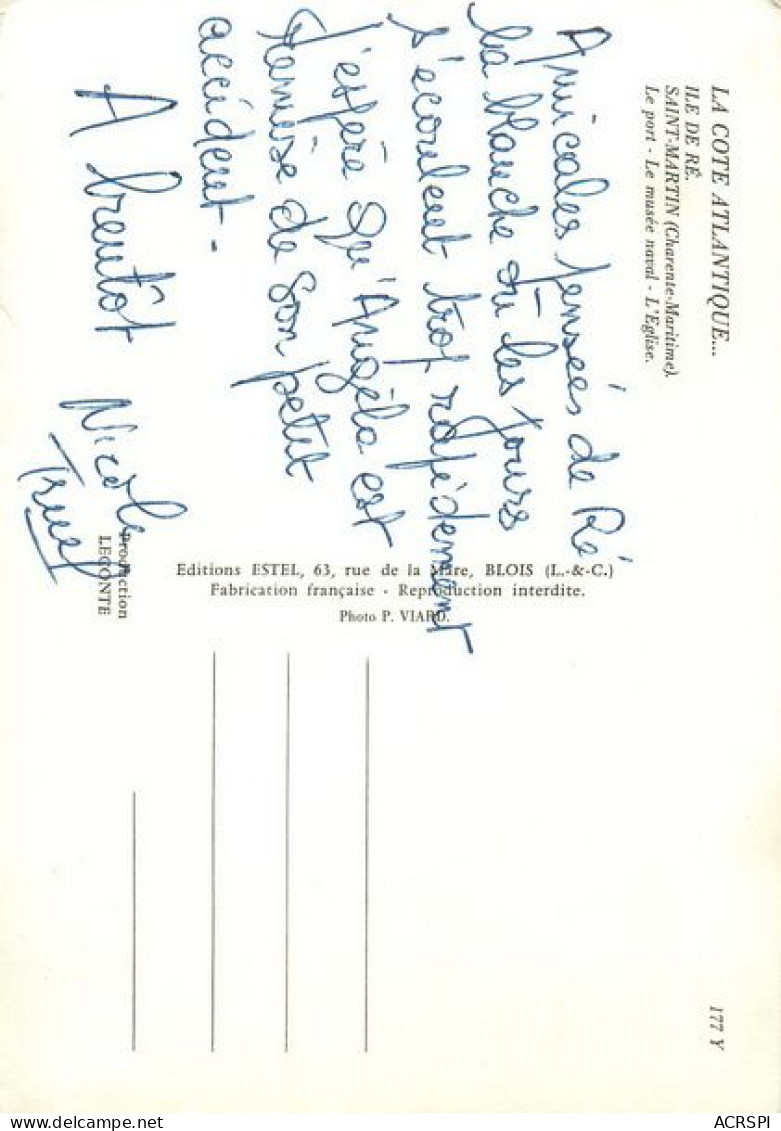 LA COTE ATLANTIQUE...
ILE DE RÉ.
SAINT-MARTIN (Charente-Maritime).
Le port - Le musée naval - L'Eglise.
177 Y
Amicales pensées de Ré
la blanche où les jours
s'écoulent trop rapidement
J'espère qu'Angéla est
remise de son petit
accident -
A bientôt
Nicole
Editions ESTEL, 63, rue de la Mare, BLOIS (L.-&-C.)
Fabrication française - Reproduction interdite.
Photo P. VIARD.
Production
LECONTE
ACRSPI